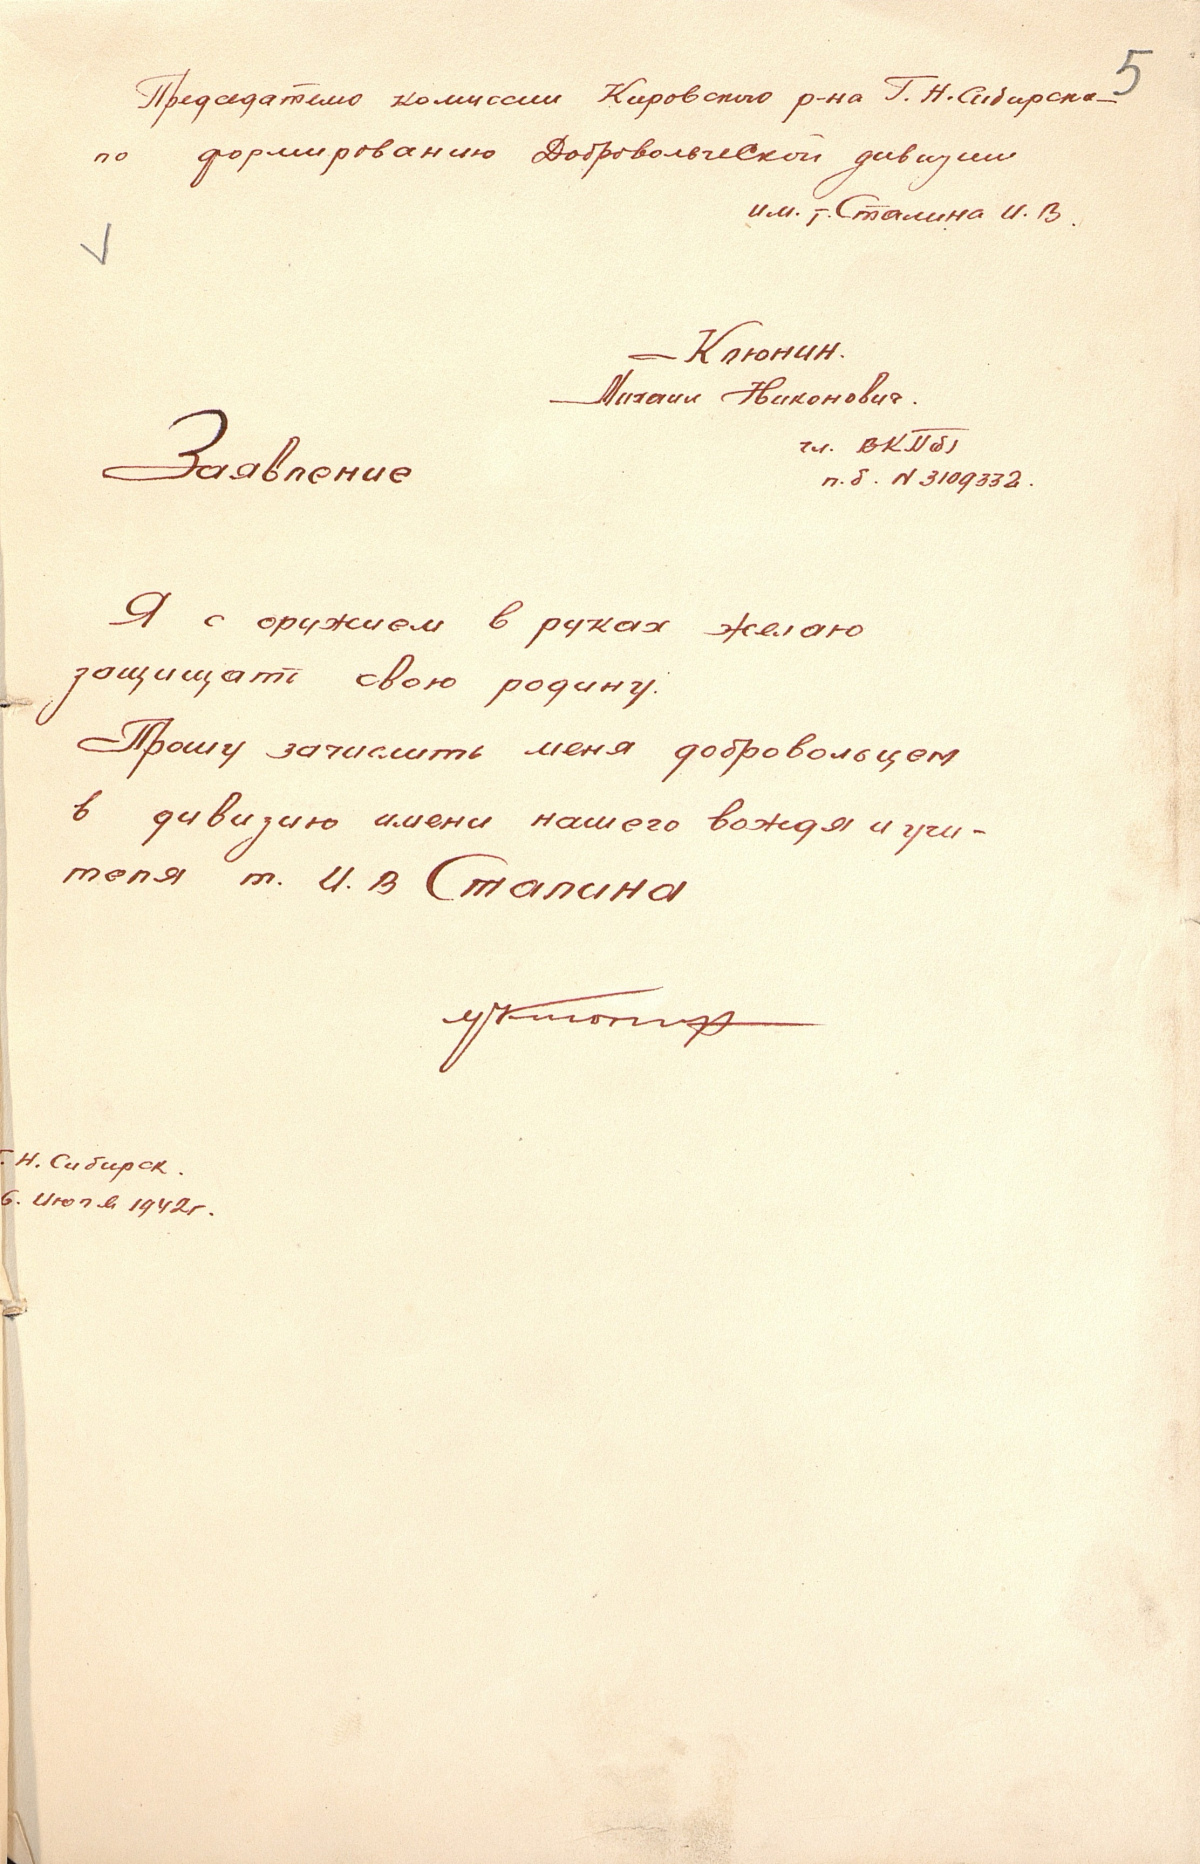 5
Председателю комиссии Кировского р-на Г. Н. Сибирска
по формированию Добровольческой дивизии
им. т. Сталина И. В.
Клюнин.
Михаил Никонович.
Заявление
чл. ВКП(б)
п.б. N 3109332.
Я с оружием в руках желаю
защищать свою родину.
Прошу зачислить меня добровольцем
в дивизию имени нашего вождя и учи-
теля т. И. В Сталина
МКлюнин
г. Н. Сибирск.
6. Июля 1942г.